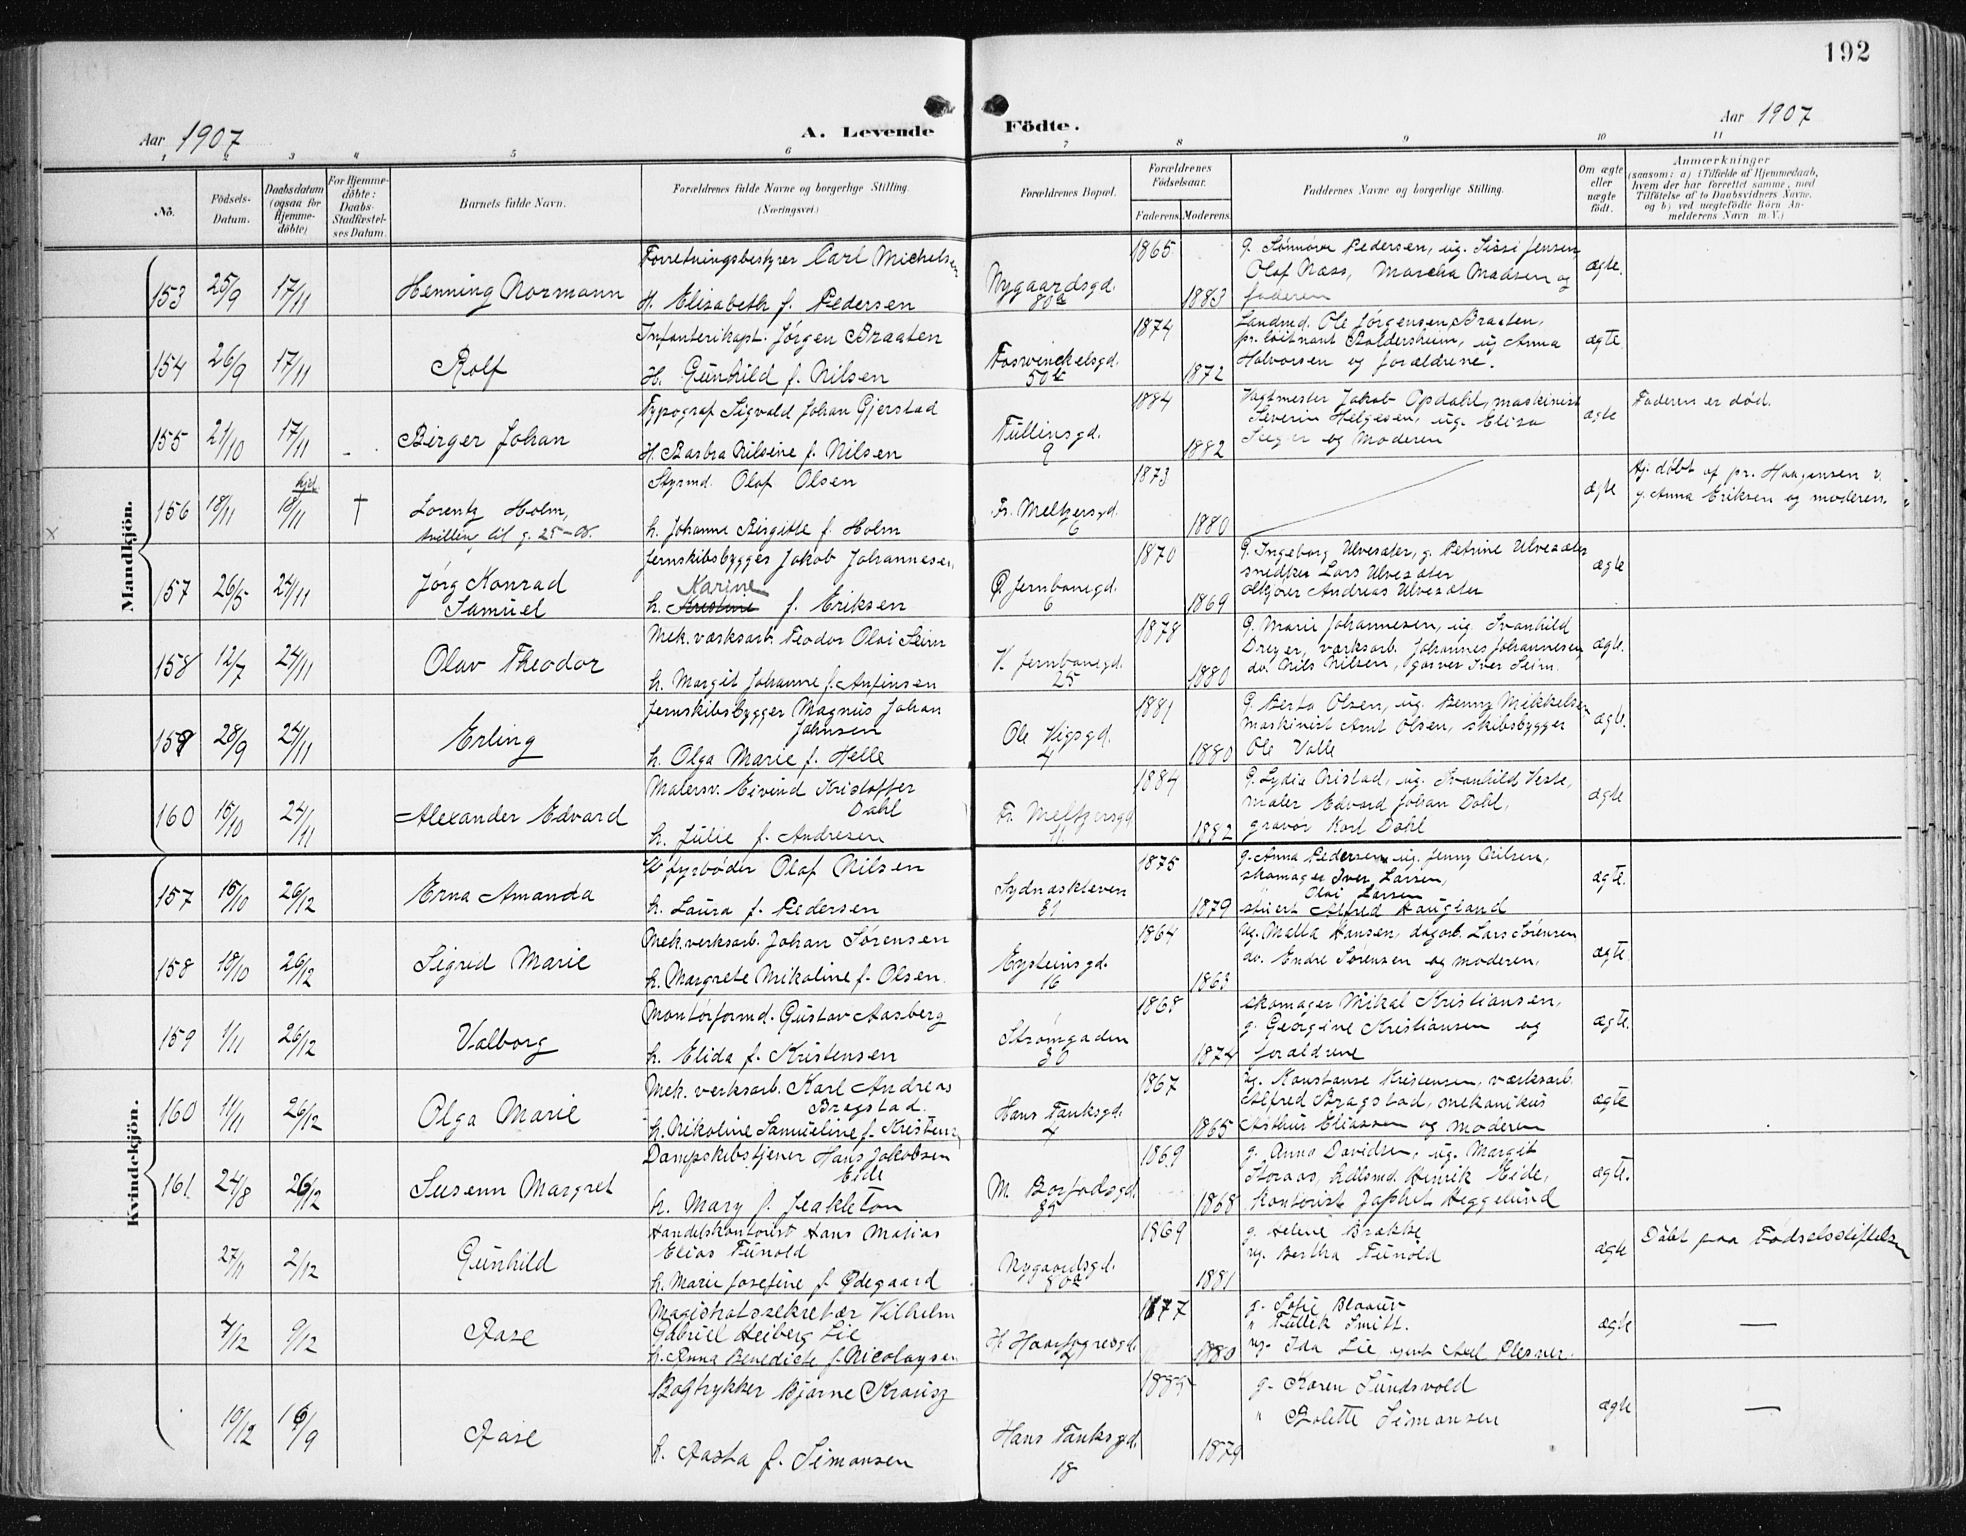 192
Aar 1907
A. Levende
Födte.
Aar 1907
1 2 3 4 5 6 7 8 9 10 11
No.
Födsels-Datum.
Daabsdatum (ogsaa for Hjemme-döbte)
For Hjemme-döbte: Daabs-Stadfæstel-ses Datum.
Barnets fulde Navn.
Forældrenes fulde Navne og borgerlige Stilling.
(Næringsvei)
Forældrenes Bopæl.
Forældrenes Födselsaar.
Faderens. Moderens.
Faddernes Navne og borgerlige Stilling.
Om ægte eller uægte födt.
Anmærkninger
(saasom: a) i Tilfælde af Hjemmedaab,
hvem der har forrettet samme, med
Tilföielse af to Daabsvidners Navne,
og b) ved uægtefödte Börn An-
melderens Navn m. V.)
Mandkjön.
153 25/9 17/11 Henning Normann
Forretningsbestyrer Carl Michelsen
H. Elisabeth f. Pedersen
Nygaardsgd. 80a
1865 1883
g. Sønnøve Pedersen, ug. Sissi Jensen
Olaf Næss, Martha Madsen og
faderen
ægte.
154 26/9 17/11 Rolf
Infanterikapt. Jørgen Braaten
H. Gunhild f. Nilsen
Foswinckelsgd. 50b
1874 1872
Landmd. Ole Jørgensen Braaten,
pr. løitnant Boldersheim, ug Anna
Halvorsen og forældrene.
ægte
155 21/10 17/11 Birger Johan
Typograf Sigvald Johan Gjerstad
H. Barbra Nilsine f. Nilsen
Tullinsgd. 9
1884 1882
Vagtmester Jakob Opdahl, maskinist
Severin Helgesen, ug. Elisa
Sæger og Moderen
ægte
Faderen er død.
156 18/11 hjd. 18/11 † Lorentz Holm,
tvilling til g. 25-08.
Styrmd. Olaf Olsen
h. Johanne Birgitte f. Holm
Fr. Meltzersgd. 6
1873 1880
ægte
hj. døbt af pr. Haagensen v.
g. Anna Eriksen og moderen.
157 26/5 24/11 Jørg Konrad
Samuel
Jernskibsbygger Jakob Johannesen
Karine
h. Kristine f. Eriksen
Ø. Jernbanegd. 6
1870 1869
g. Ingeborg Ulvesæter, g. Petrine Ulvesæter
snedker Lars Ulvesæter
ølkjører Andreas Ulvesæter
ægte
158 12/7 24/11 Olav Theodor
Mek. værksarb. Teodor Olai Seim
h. Margit Johanne f. Anfinsen
V. Jernbanegd. 25
1878 1880
g. Marie Johannesen, ug. Svanhild
Dreyer, værksarb. Johannes Johannesen,
do. Nils Nilsen, garver Iver Seim.
ægte.
159 28/9 24/11 Erling
Jernskibsbygger Magnus Johan
Johnsen
h. Olga Marie f. Helle
Ole Vigsgd. 4
1881 1880
g. Berta Olsen, ug. Benny Mikkelsen
maskinist Arnt Olsen, skibsbygger
Ole Valle
ægte.
160 15/10 24/11 Alexander Edvard
Malersv. Eivind Kristoffer
Dahl
h. Julie f. Andresen
Fr. Meltzersgd. 11
1884 1882
g. Lydia Aristad, ug. Svanhild Veste,
maler Edvard Johan Dahl,
gravør Karl Dahl
ægte
Kvindekjön.
157 15/10 26/12 Erna Amanda
fyrbøder Olaf Nilsen
h. Laura f. Pedersen
Sydnæskleven 31
1875 1879
g. Anna Pedersen, ug. Jenny Nilsen,
skomager Iver Larsen,
Olai Larsen
stuert Alfred Haugland
ægte.
158 18/10 26/12 Sigred Marie
Mek. verksarb. Johan Sørensen
h. Margrete Mikoline f. Olsen
Eysteinsgd. 16
1864 1863
ug. Malla Hansen, dagarb. Lars Sørensen
do. Endre Sørensen og moderen.
ægte.
159 1/11 26/12 Valborg
Montørformd. Gustav Aasberg
h. Elida f. Kristensen
Strømgaden 30
1868 1874
skomager Mikal Kristiansen,
g. Georgine Kristiansen og
forældrene
ægte.
160 11/11 26/12 Olga Marie
Mek. verksarb. Karl Andreas
Bragstad.
h. Nikoline Samueline f. Kristensen
Hans Tanksgd. 4
1867 1865
ug. Konstanse Kristensen, værksarb.
Alfred Bragstad, mekanikus
Arthur Eliassen og moderen
ægte
161. 24/8 26/12 Susenn Margret
Dampskibstjener Hans Jakobsen
Eide
h. Mary f. Jeakleton
M. Borfadsgd. 35
1869 1868
g. Anna Davidsen, ug. Margit
Storaas, hdlsmd. Henrik Eide,
kontorist Japhet Heggelund
ægte.
27/11 2/12 Gunhild
Handelskontorist Hans Matias
Elias Funold
h. Marie Josefine f. Ødegaard
Nygaardsgd. 80a
1869 1881
g. Helene Brække
ug. Bertha Funold
ægte
Døbt paa Fødselsstiftelsen
7/12 9/12 Aase
Magistratssekretær Vilhelm
Gabriel Heiberg Lie
h. Anna Benedicte f. Nicolaysen
H. Haarfagresgd. 7
1877 1880
g. Sofie Blaauw
" Tullik Smitt.
ug. Ida Lie Axel Plesner.
ægte —
10/12 16/9 Aase
Bogtrykker Bjarne Krausz
h. Aasta f. Simonsen
Hans Tanksgd. 18
1885 1879
g. Karen Sundsvold
" Bolette Simonsen
ægte —